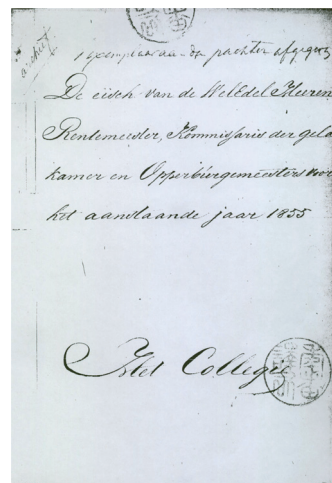 archief
1 exemplaar aan den pachter afgegeven
De eisch van de WelEdel Heeren
Rentemeester, Kommissaris der geld
kamer en Opperburgemeesters voor
het aanstaande jaar 1855
Het Collegie